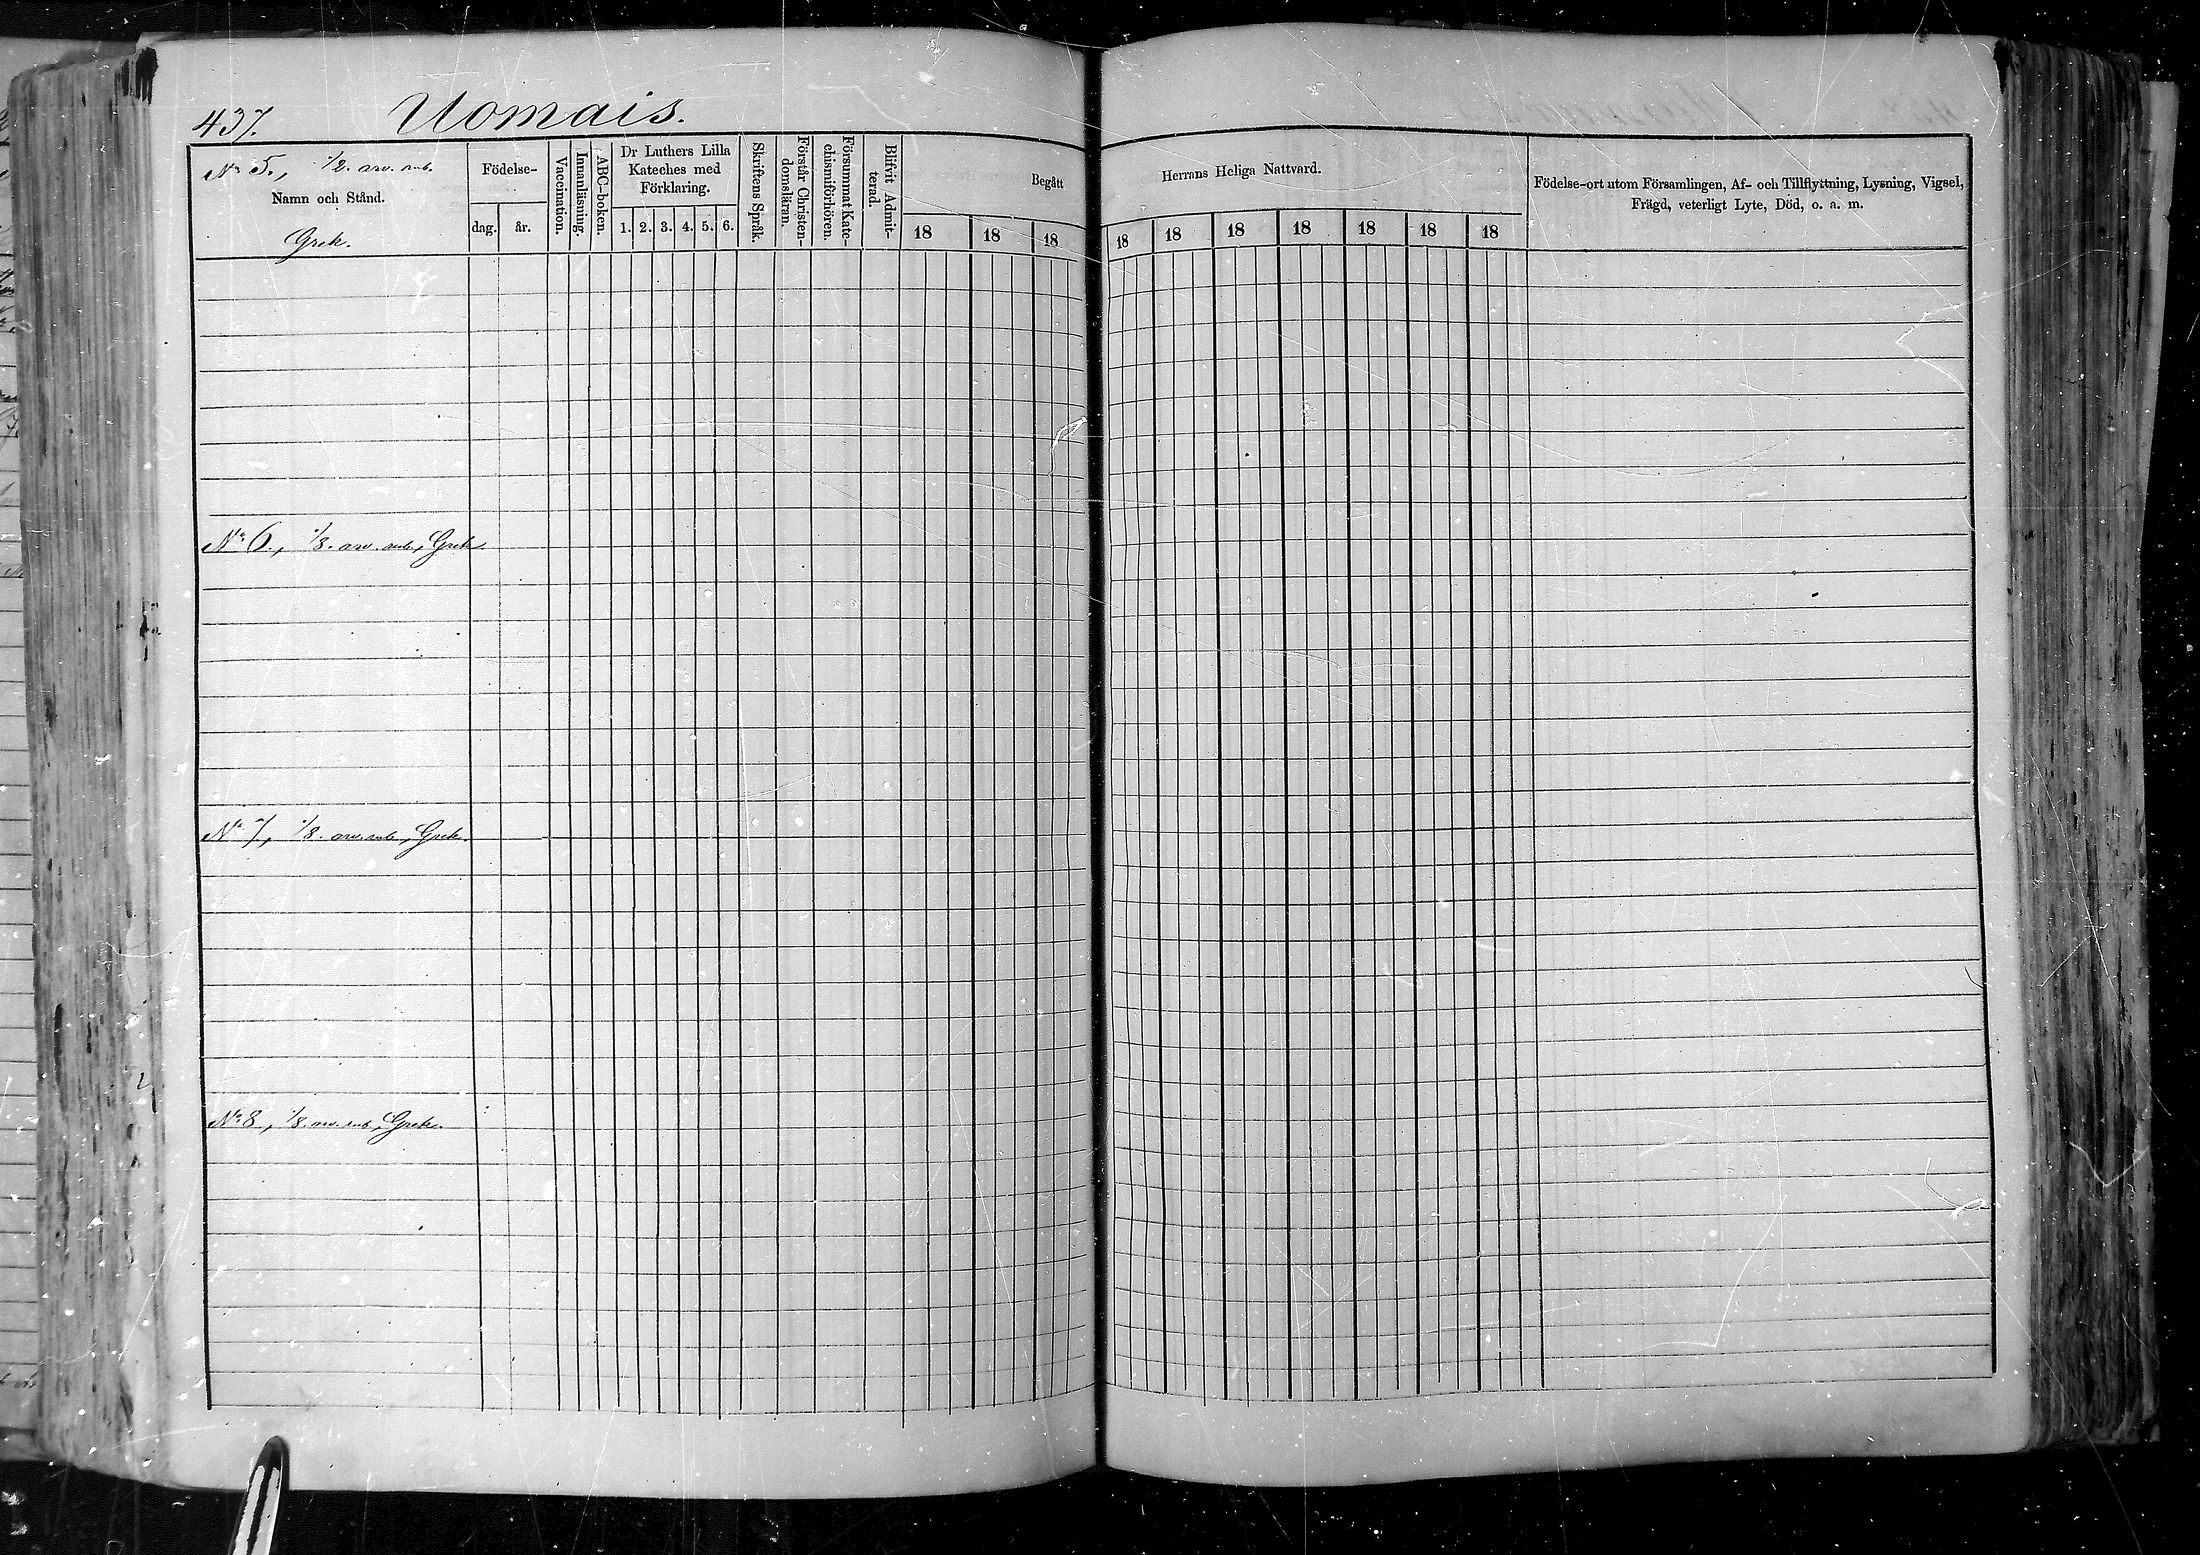 437.
Uomais.
No 5., 1/2. arv. rub.
Namn och Stånd.
Grek.
Födelse-
dag. år.
Vaccination.
Innanläsning.
ABC-boken.
Dr Luthers Lilla
Kateches med
Förklaring.
1. 2. 3. 4. 5. 6.
Skriftens Språk.
Förstår Christen-
domsläran.
Försummat Kate-
chismiförhören.
Blifvit Admit-
terad.
Begått
18 18 18
Herrans Heliga Nattvard.
18 18 18 18 18 18 18
Födelse-ort utom Församlingen, Af- och Tillflyttning, Lysning, Vigsel,
Frägd, veterligt Lyte, Död, o. a. m.
No 6., 1/8. arv. rub., Grek.
No 7, 1/8. arv. rub., Grek.
No 8., 1/8. arv. rub., Grek.